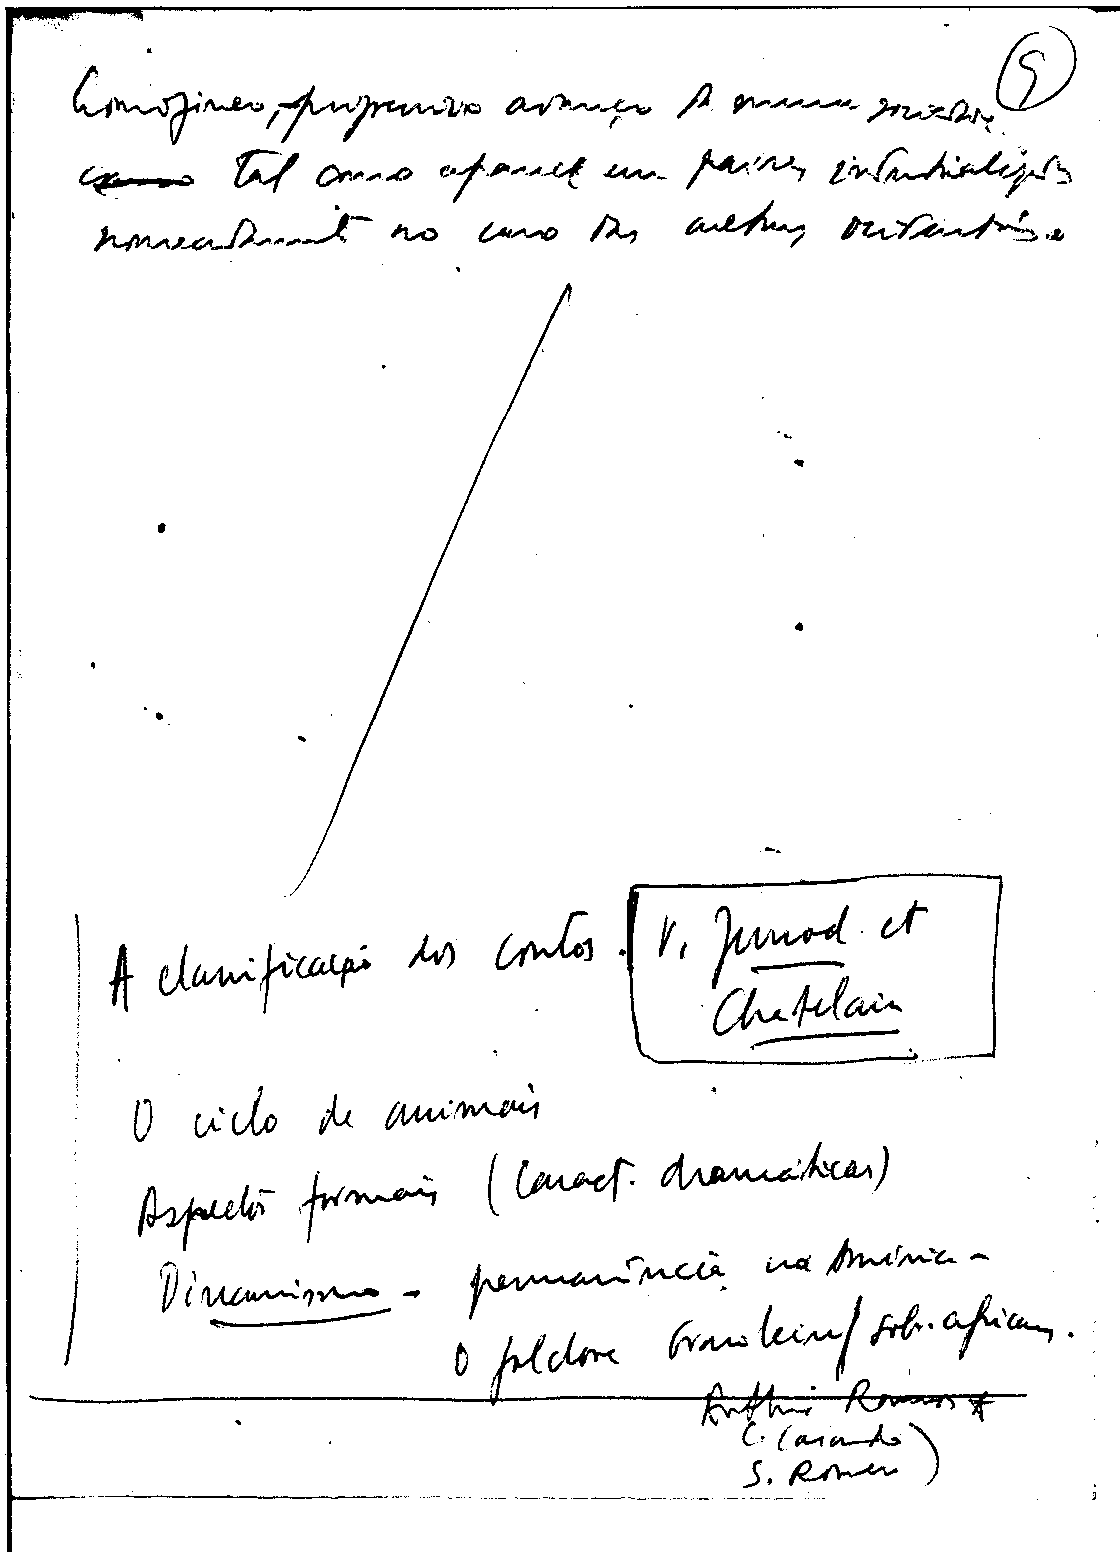 9
homogéneo, progressivo avanço da
tal como aparece em países industrializados
nomeadamente no caso das ocidentais.
A classificação dos contos.
V. Junod et
Chatelain
O ciclo de animais
Aspectos formais (Caract. dramáticas)
Dinamismo - permanência na América -
O folclore brasileiro/ sobr. africana.
Arthur Ramos
C. Cascudo)
S. Romero